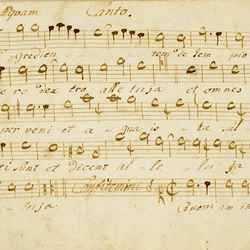 Aquam Canto.
gredien tem de Templo
te re dex tro alleluja et omnes
per veni et a qua is ta sal
ti sunt et dicent al le lu ja
luja Confitemini Quoniam in